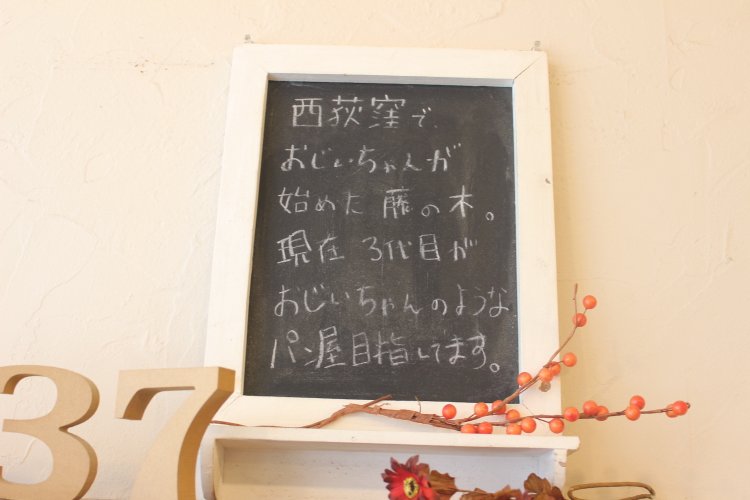 西荻窪で、
おじいちゃんが
始めた 藤の木。
現在 3代目が
おじいちゃんのような
パン屋目指してます。
37